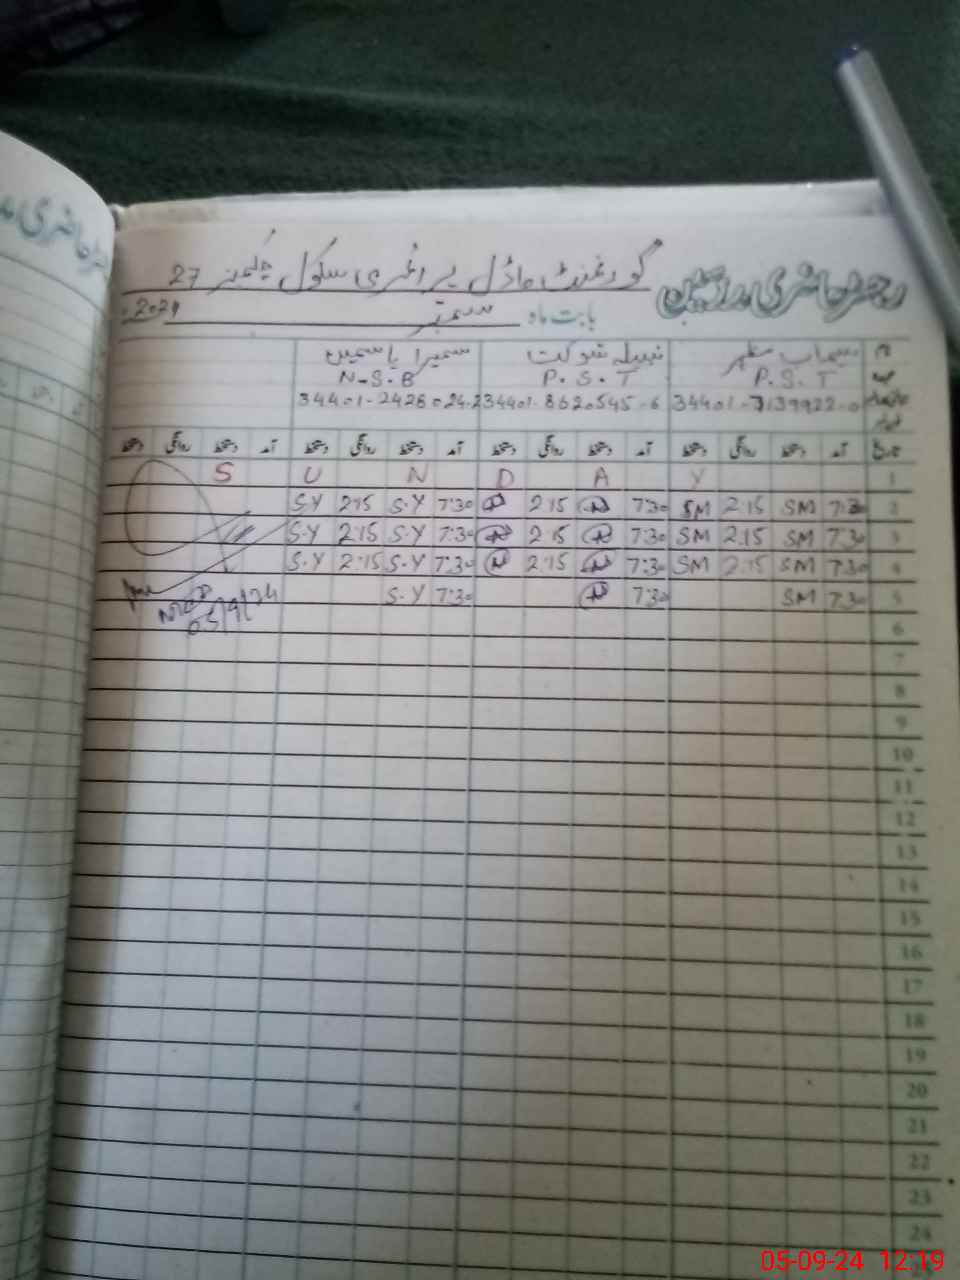 رجسٹر حاضری مدرسین
گورنمنٹ ماڈل پرائمری سکول چک نمبر 27
بابت ماہ ستمبر 2024
نام سیماب مظہر نبیلہ شوکت سمیرا یاسمین
P.S.T P.S.T N-S-B
34401-7139922-0 34401-8620545-6 34401-2428024-2
تاریخ آمد دستخط روانگی دستخط آمد دستخط روانگی دستخط آمد دستخط روانگی دستخط آمد دستخط روانگی دستخط
1 S U N D A Y
2 7:30 SM 2:15 SM 7:30 N 2:15 N 7:30 S.Y 2:15 S.Y
3 7:30 SM 2:15 SM 7:30 N 2:15 N 7:30 S.Y 2:15 S.Y
4 7:30 SM 2:15 SM 7:30 N 2:15 N 7:30 S.Y 2:15 S.Y
5 7:30 SM 7:30 N 7:30 S.Y
05/9/24
6
7
8
9
10
11
12
13
14
15
16
17
18
19
20
21
22
23
24
05-09-24 12:19